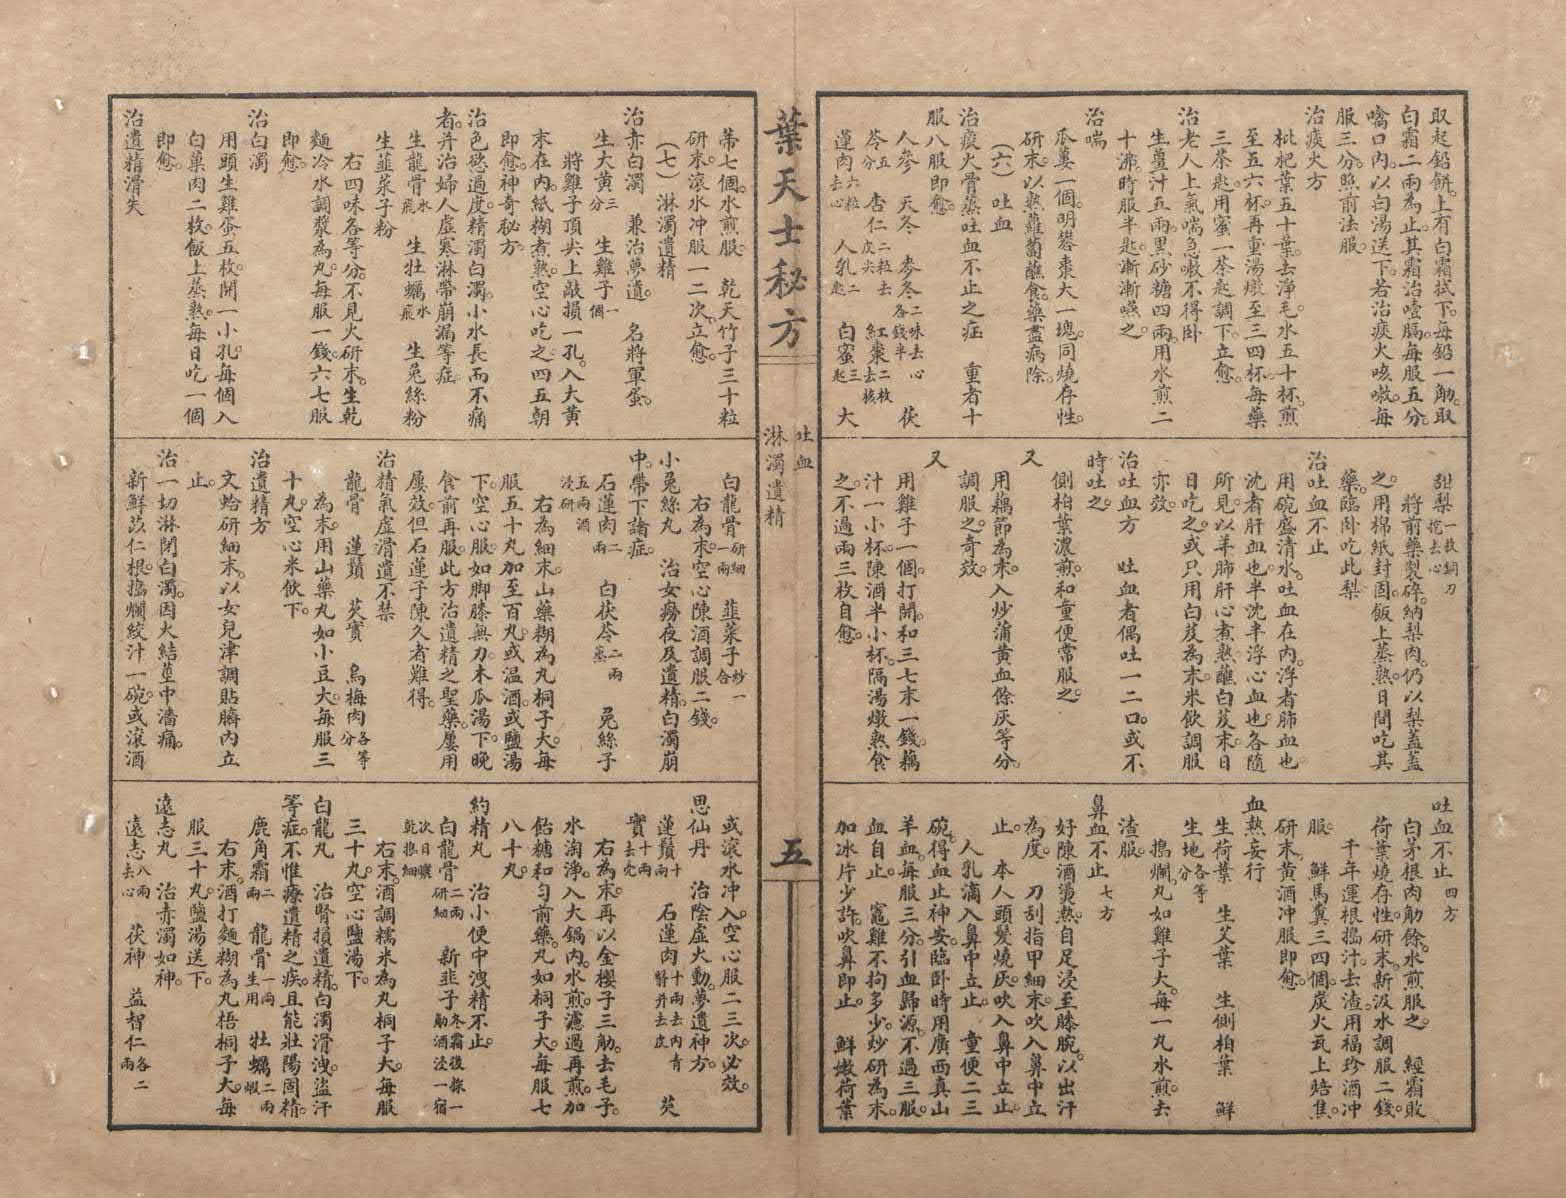 取起鉛餅。上有白霜拭下。每鉛一觔。取
白霜二兩為止。其霜治噎膈。每服五分。
噙口內。以白湯送下。若治痰火咳嗽。每
服三分。照前法服。
治痰火方
枇杷葉五十葉。去淨毛。水五十杯。煎
至五六杯。再重湯燉至三四杯。每藥
三茶匙。用蜜一茶匙調下。立愈。
治老人上氣喘急嗽不得卧
生薑汁五兩。黑砂糖四兩。用水煎二
十沸。時服半匙。漸漸嚥之。
治喘
瓜蔞一個。明礬棗大一塊。同燒存性。
研末。以熟蘿蔔蘸食。藥盡病除。
（六）吐血
治痰火骨蒸吐血不止之症　重者十
服八服即愈。
人參　天冬　麥冬二味去心各錢半　茯
苓五分　杏仁二粒去皮尖　紅棗二枚去核
蓮肉六粒去心　人乳二匙　白蜜三匙　大
甜梨一枚銅刀挖去心
將前藥製碎。納梨肉。仍以梨蓋蓋
之。用棉紙封固。飯上蒸熟。日間吃其
藥。臨卧吃此梨
治吐血不止
用碗盛清水。吐血在內。浮者肺血也
沈者肝血也。半沈半浮心血也。各隨
所見。以羊肺肝心煮熟。蘸白芨末。日
日吃之。或只用白芨為末。米飲調服
亦效。
治吐血方　吐血者偶吐一二口。或不
時吐之。
側柏葉濃煎。和童便常服之。
又
用藕節為末。入炒蒲黃血餘灰等分。
調服之。奇效。
又
用雞子一個。打開。和三七末一錢。藕
汁一小杯。陳酒半小杯。隔湯燉熟食
之。不過兩三枚自愈。
吐血不止四方
白茅根肉觔餘。水煎服之。　經霜敗
荷葉燒存性。研末。新汲水調服二錢。
千年運根搗汁。去渣。用福珍酒冲
服。　鮮馬糞三四個。炭火瓦上焙焦。
研末。黃酒冲服即愈。
血熱妄行
生荷葉　生艾葉　生側柏葉　鮮
生地各等分
搗爛。丸如雞子大。每一丸水煎。去
渣服。
鼻血不止七方
好陳酒燙熱。自足浸至膝腕。以出汗
為度。　刀刮指甲細末。吹入鼻中立
止。　本人頭髮燒灰。吹入鼻中立止。
人乳滴入鼻中立止。　童便二三
碗。得血止神安。臨卧時用廣西真山
羊血。每服三分。引血歸源。不過三服。
血自止。　竈雞不拘多少。炒研為末。
加冰片少許。吹鼻即止。　鮮嫩荷葉
葉天士秘方
吐血
淋濁遺精
五
蒂七個。水煎服　乾天竹子三十粒
研末。滾水冲服一二次。立愈。
（七）淋濁遺精
治赤白濁　兼治夢遺。名將軍蛋。
生大黃三分　生雞子一個
將雞子頂尖上敲損一孔。入大黃
末在內。紙糊煮熟。空心吃之。四五朝
即愈。神奇秘方。
治色慾過度。精濁白濁。小水長而不痛
者。并治婦人虛寒淋帶崩漏等症
生龍骨水飛　生牡蠣水飛　生兔絲粉
生韮菜子粉
右四味各等分。不見火研末。生乾
麵冷水調漿為丸。每服一錢。六七服
即愈。
治白濁
用頭生雞蛋五枚。開一小孔。每個入
白菓肉二枚。飯上蒸熟。每日吃一個
即愈。
治遺精滑失
白龍骨研細一兩　韮菜子炒一合
右為末。空心陳酒調服二錢。
小兔絲丸　治女癆夜及遺精。白濁崩
中。帶下諸症。
石蓮肉二兩　白茯苓二兩蒸　兔絲子
五兩酒浸研
右為細末。山藥糊為丸桐子大。每
服五十丸。加至百丸。或温酒。或鹽湯
下。空心服。如脚膝無力。木瓜湯下。晚
食前再服。此方治遺精之聖藥。屢用
屢效。但石蓮子陳久者難得。
治精氣虛滑遺不禁
龍骨　蓮鬚　芡實　烏梅肉各等分
為末。用山藥丸如小豆大。每服三
十丸。空心米飲下。
治遺精方
文蛤研細末。以女兒津調貼臍內立
止。
治一切淋閉白濁。因火結莖中濇痛。
新鮮苡仁根。搗爛絞汁一碗。或滾酒
或滾水冲入。空心服二三次。必效。
思仙丹　治陰虛火動。夢遺神方。
蓮鬚十兩　石蓮肉十兩去內青腎并去皮　芡
實十兩去壳
右為末。再以金櫻子三觔。去毛子。
水淘淨。入大鍋內。水煎。濾過再煎。加
飴糖和勻前藥。丸如桐子大。每服七
八十丸。
約精丸　治小便中洩精不止。
白龍骨二兩研細　新韭子冬霜後採一觔酒浸一宿
次日曬乾搗細
右末。酒調糯米為丸桐子大。每服
三十丸。空心鹽湯下。
白龍丸　治腎損遺精。白濁滑洩。盜汗
等症。不惟療遺精之疾。且能壯陽固精。
鹿角霜二兩　龍骨一兩生用　牡蠣二兩煅
右末。酒打麵糊為丸梧桐子大。每
服三十丸。鹽湯送下。
遠志丸　治赤濁如神。
遠志八兩去心　茯神　益智仁各二兩